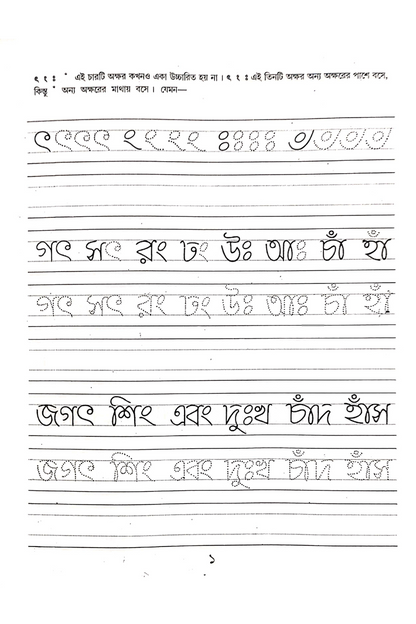 ৎ ং ঃ ঁ এই চারটি অক্ষর কখনও একা উচ্চারিত হয় না। ৎ ং ঃ এই তিনটি অক্ষর অন্য অক্ষরের পাশে বসে,
কিন্তু ঁ অন্য অক্ষরের মাথায় বসে। যেমন—
ৎ ৎ ৎ ৎ ং ং ং ং ঃ ঃ ঃ ঃ ঁ ঁ ঁ ঁ
গৎ সৎ রং ঢং উঃ আঃ চাঁ হাঁ
গৎ সৎ রং ঢং উঃ আঃ চাঁ হাঁ
জগৎ শিং এবং দুঃখ চাঁদ হাঁস
জগৎ শিং এবং দুঃখ চাঁদ হাঁস
১